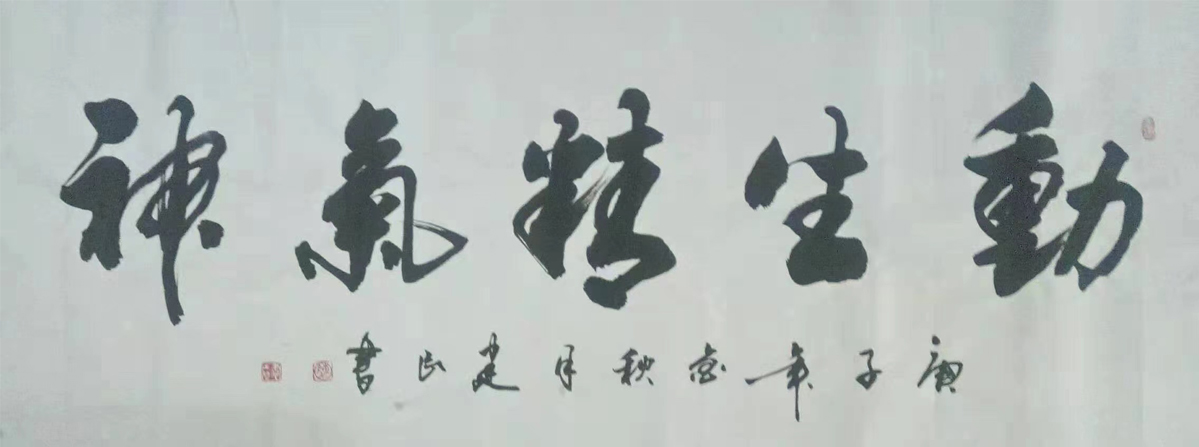 動生精氣神
庚子年金秋月建民書